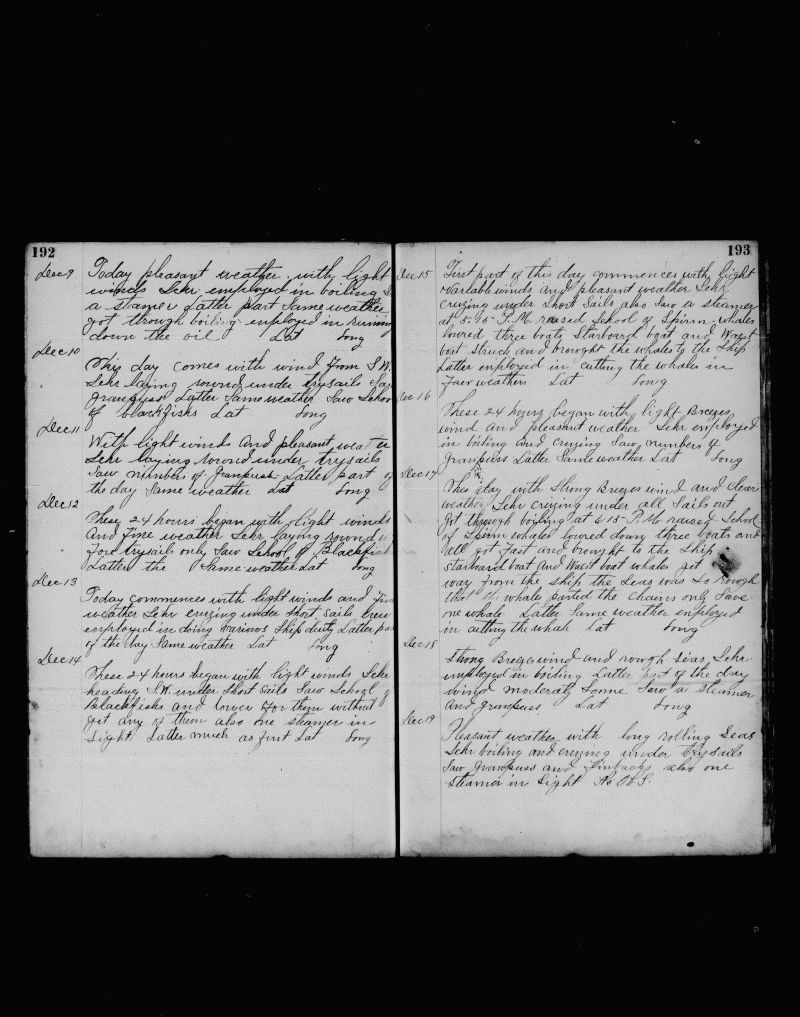 192
Dec 9 Today pleasant weather with light
winds Schr employed in boiling S
a steamer Latter part Same weather
got through boiling employed in runing
down the oil Lat Long
Dec 10 This day comes with wind from S.W.
Schr laying round under trysails Saw
granpuss Latter Same weather Saw School
of blackfishs Lat Long
Dec 11 With light winds and pleasant weater
Schr laying round under trysails
Saw numbers of Granpuss Latter part of
the day Same weather Lat Long
Dec 12 These 24 hours began with light winds
and fine weather Schr laying round
Fore trysails only Saw School of Blackfish
Latter the Same weather Lat Long
Dec 13 Today commences with light winds and fine
weather Schr cruzing under Short Sails Crew
employed in doing various Ship duty Latter par
of the day Same weather Lat Long
Dec 14 These 24 hours began with light winds Schr
heading S.W. under Short Sails Saw School of
Blackfishs and lower for them without
get any of them also one steamer in
Sight Latter much as first Lat Long
193
Dec 15 First part of this day commences with light
Variable winds and pleasant weather Schr
cruzing under Short Sails also Saw a steamer
at 5.15 P.M. raised School of Spirm whales
lowred three boats Starboard boat and Waist
boat Struck and brought the whales to the Ship
Latter employed in cutting the whales in
Faer weathers Lat Long
Dec 16 These 24 hours began with light Breezes
wind and pleasant weather Schr employed
in boiling and cruzing Saw numbers of
Granpuss Latter Same weather Lat Long
Dec 17 This day with Strong Breezes wind and clear
weather Schr cruzing under all Sails out
got through boyling at 6.15 P.M. raised School
of Spirm whales lowred down three boats and
all got fast and brought to the Ship
Starboard boat and Waist boat whales get
way from the ship the Seas was so rough
that the whales parted the chains only Save
one whale Latter Same weather enployed
in cutting the whale Lat Long
Dec 18 Strong Breezes wind and rough Seas Schr
employed in boiling Latter part of the day
wind moderatly Some Saw a steamer
and granpuss Lat Long
Dec 19 Pleasant weather with long rolling Seas
Schr boiling and cruzing under trysails
Saw granpuss and finbacks also one
Steamer in Sight No Obs.